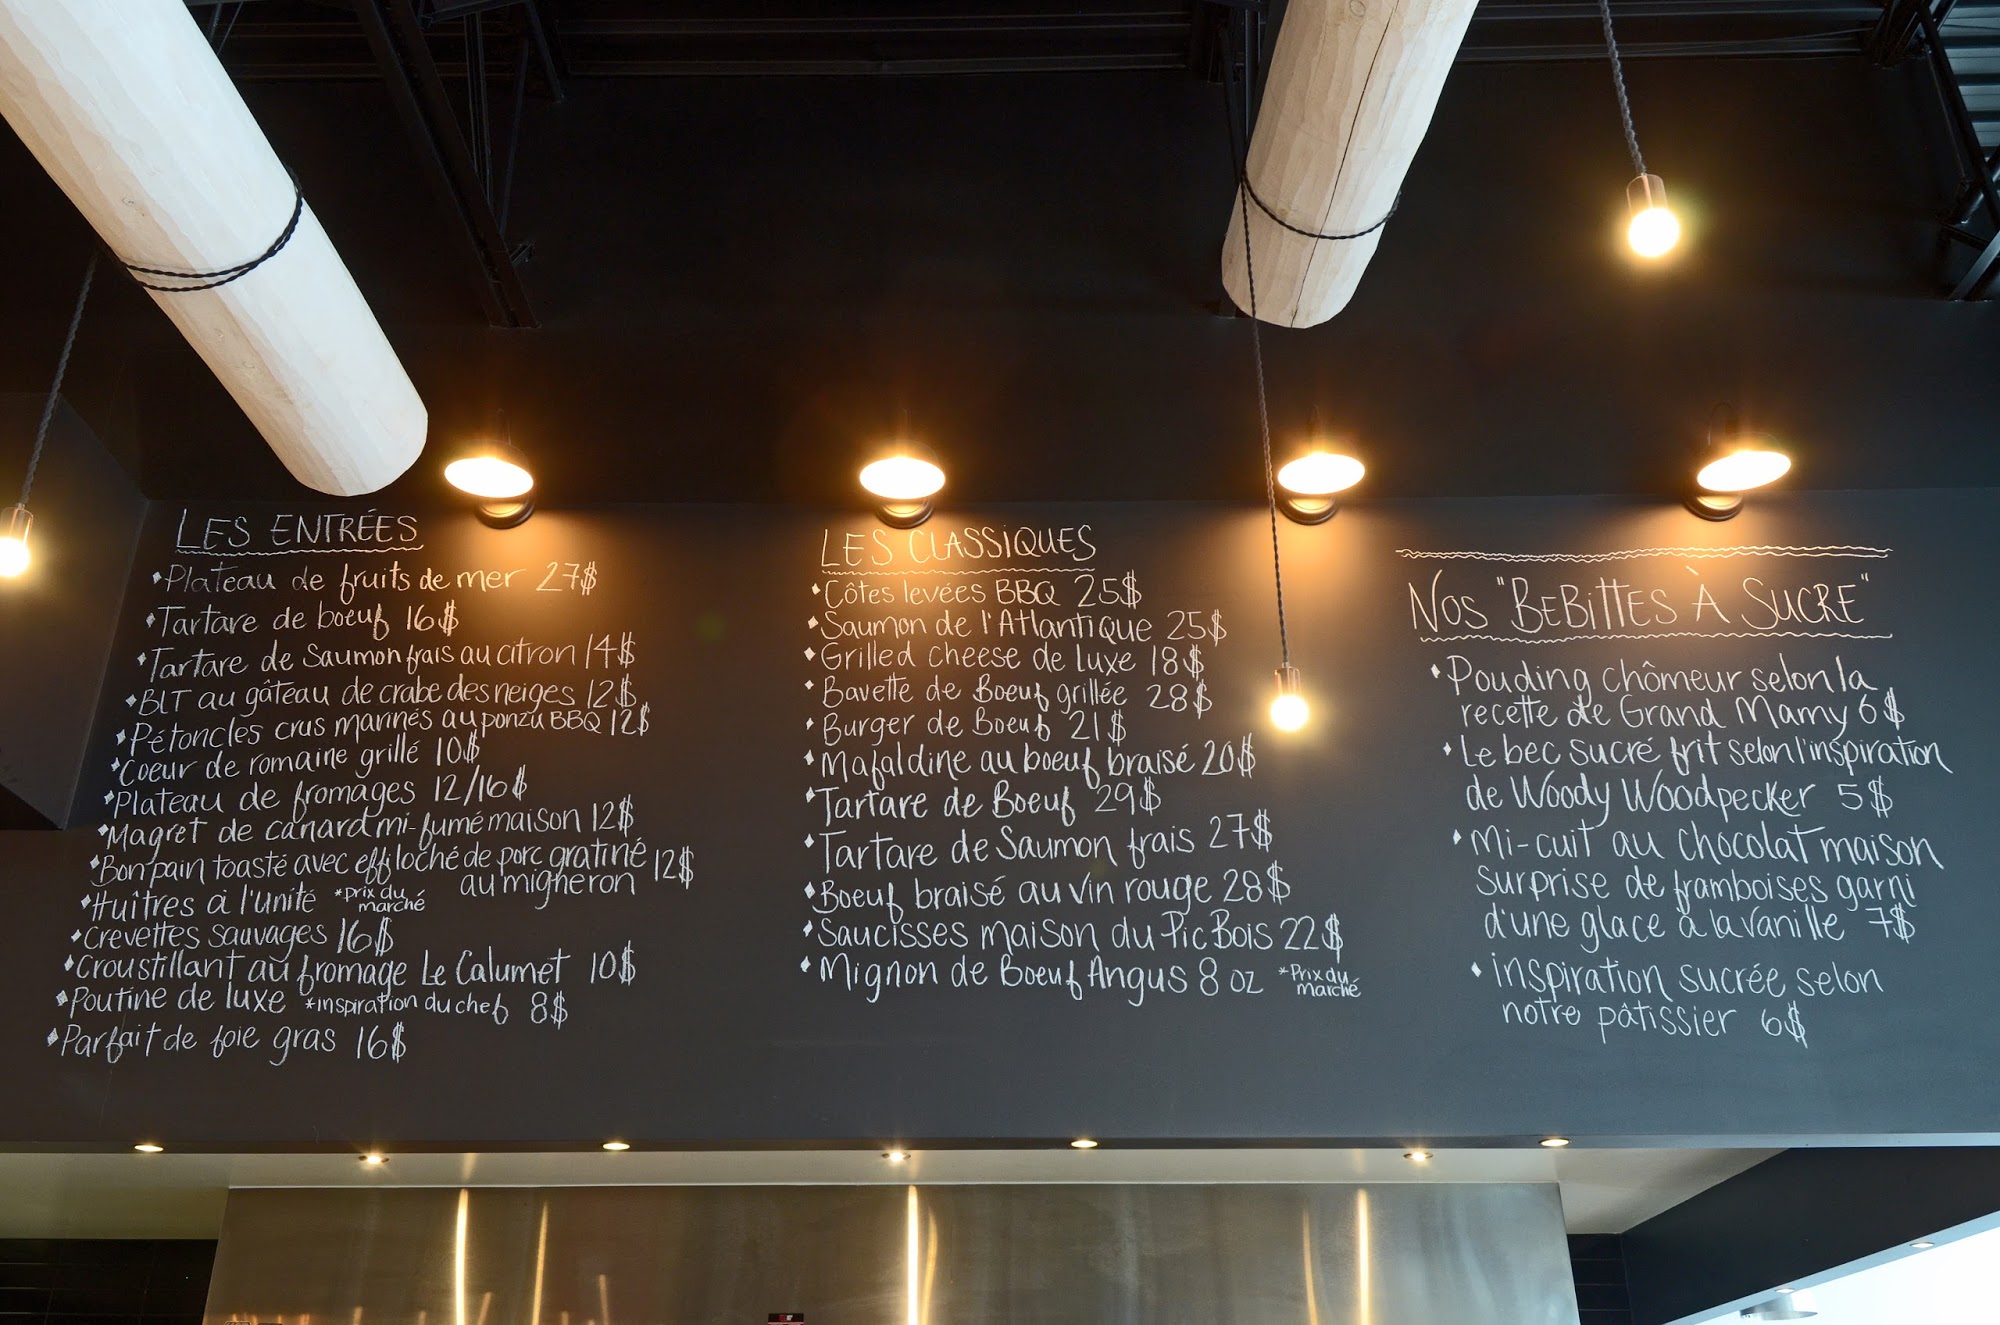 LES ENTRÉES
Plateau de fruits de mer 27$
Tartare de boeuf 16$
Tartare de Saumon frais au citron 14$
BLT au gâteau de crabe des neiges 12$
Pétoncles crus marinés au ponzu BBQ 12$
Coeur de romaine grillé 10$
Plateau de fromages 12/16$
Magret de canard mi-fumé maison 12$
Bon pain toasté avec effiloché de porc gratiné 12$
au migneron
Huîtres à l'unité *Prix du
marché
Crevettes sauvages 16$
Croustillant au fromage Le Calumet 10$
Poutine de luxe *inspiration du chef 8$
Parfait de foie gras 16$
LES CLASSIQUES
Côtes levées BBQ 25$
Saumon de l'Atlantique 25$
Grilled cheese de luxe 18$
Bavette de Boeuf grillée 28$
Burger de Boeuf 21$
Mafaldine au boeuf braisé 20$
Tartare de Boeuf 29$
Tartare de Saumon frais 27$
Boeuf braisé au vin rouge 28$
Saucisses maison du Pic Bois 22$
Mignon de Boeuf Angus 8 oz *Prix du
marché
NOS "BEBITTES À SUCRE"
Pouding chômeur selon la
recette de Grand Mamy 6$
Le bec sucré frit selon l'inspiration
de Woody Woodpecker 5$
Mi-cuit au chocolat maison
surprise de framboises garni
d'une glace à la vanille 7$
inspiration sucrée selon
notre pâtissier 6$